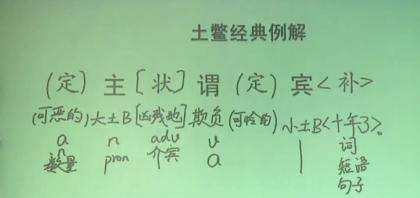 土鳖经典例解
(定) 主 [状] 谓 (定) 宾<补>
(可恶的)大土B[凶残地]欺负(可怜的)小土B<十年了>。
a n adv v | 词
数量 pron 介宾 a 短语
句子